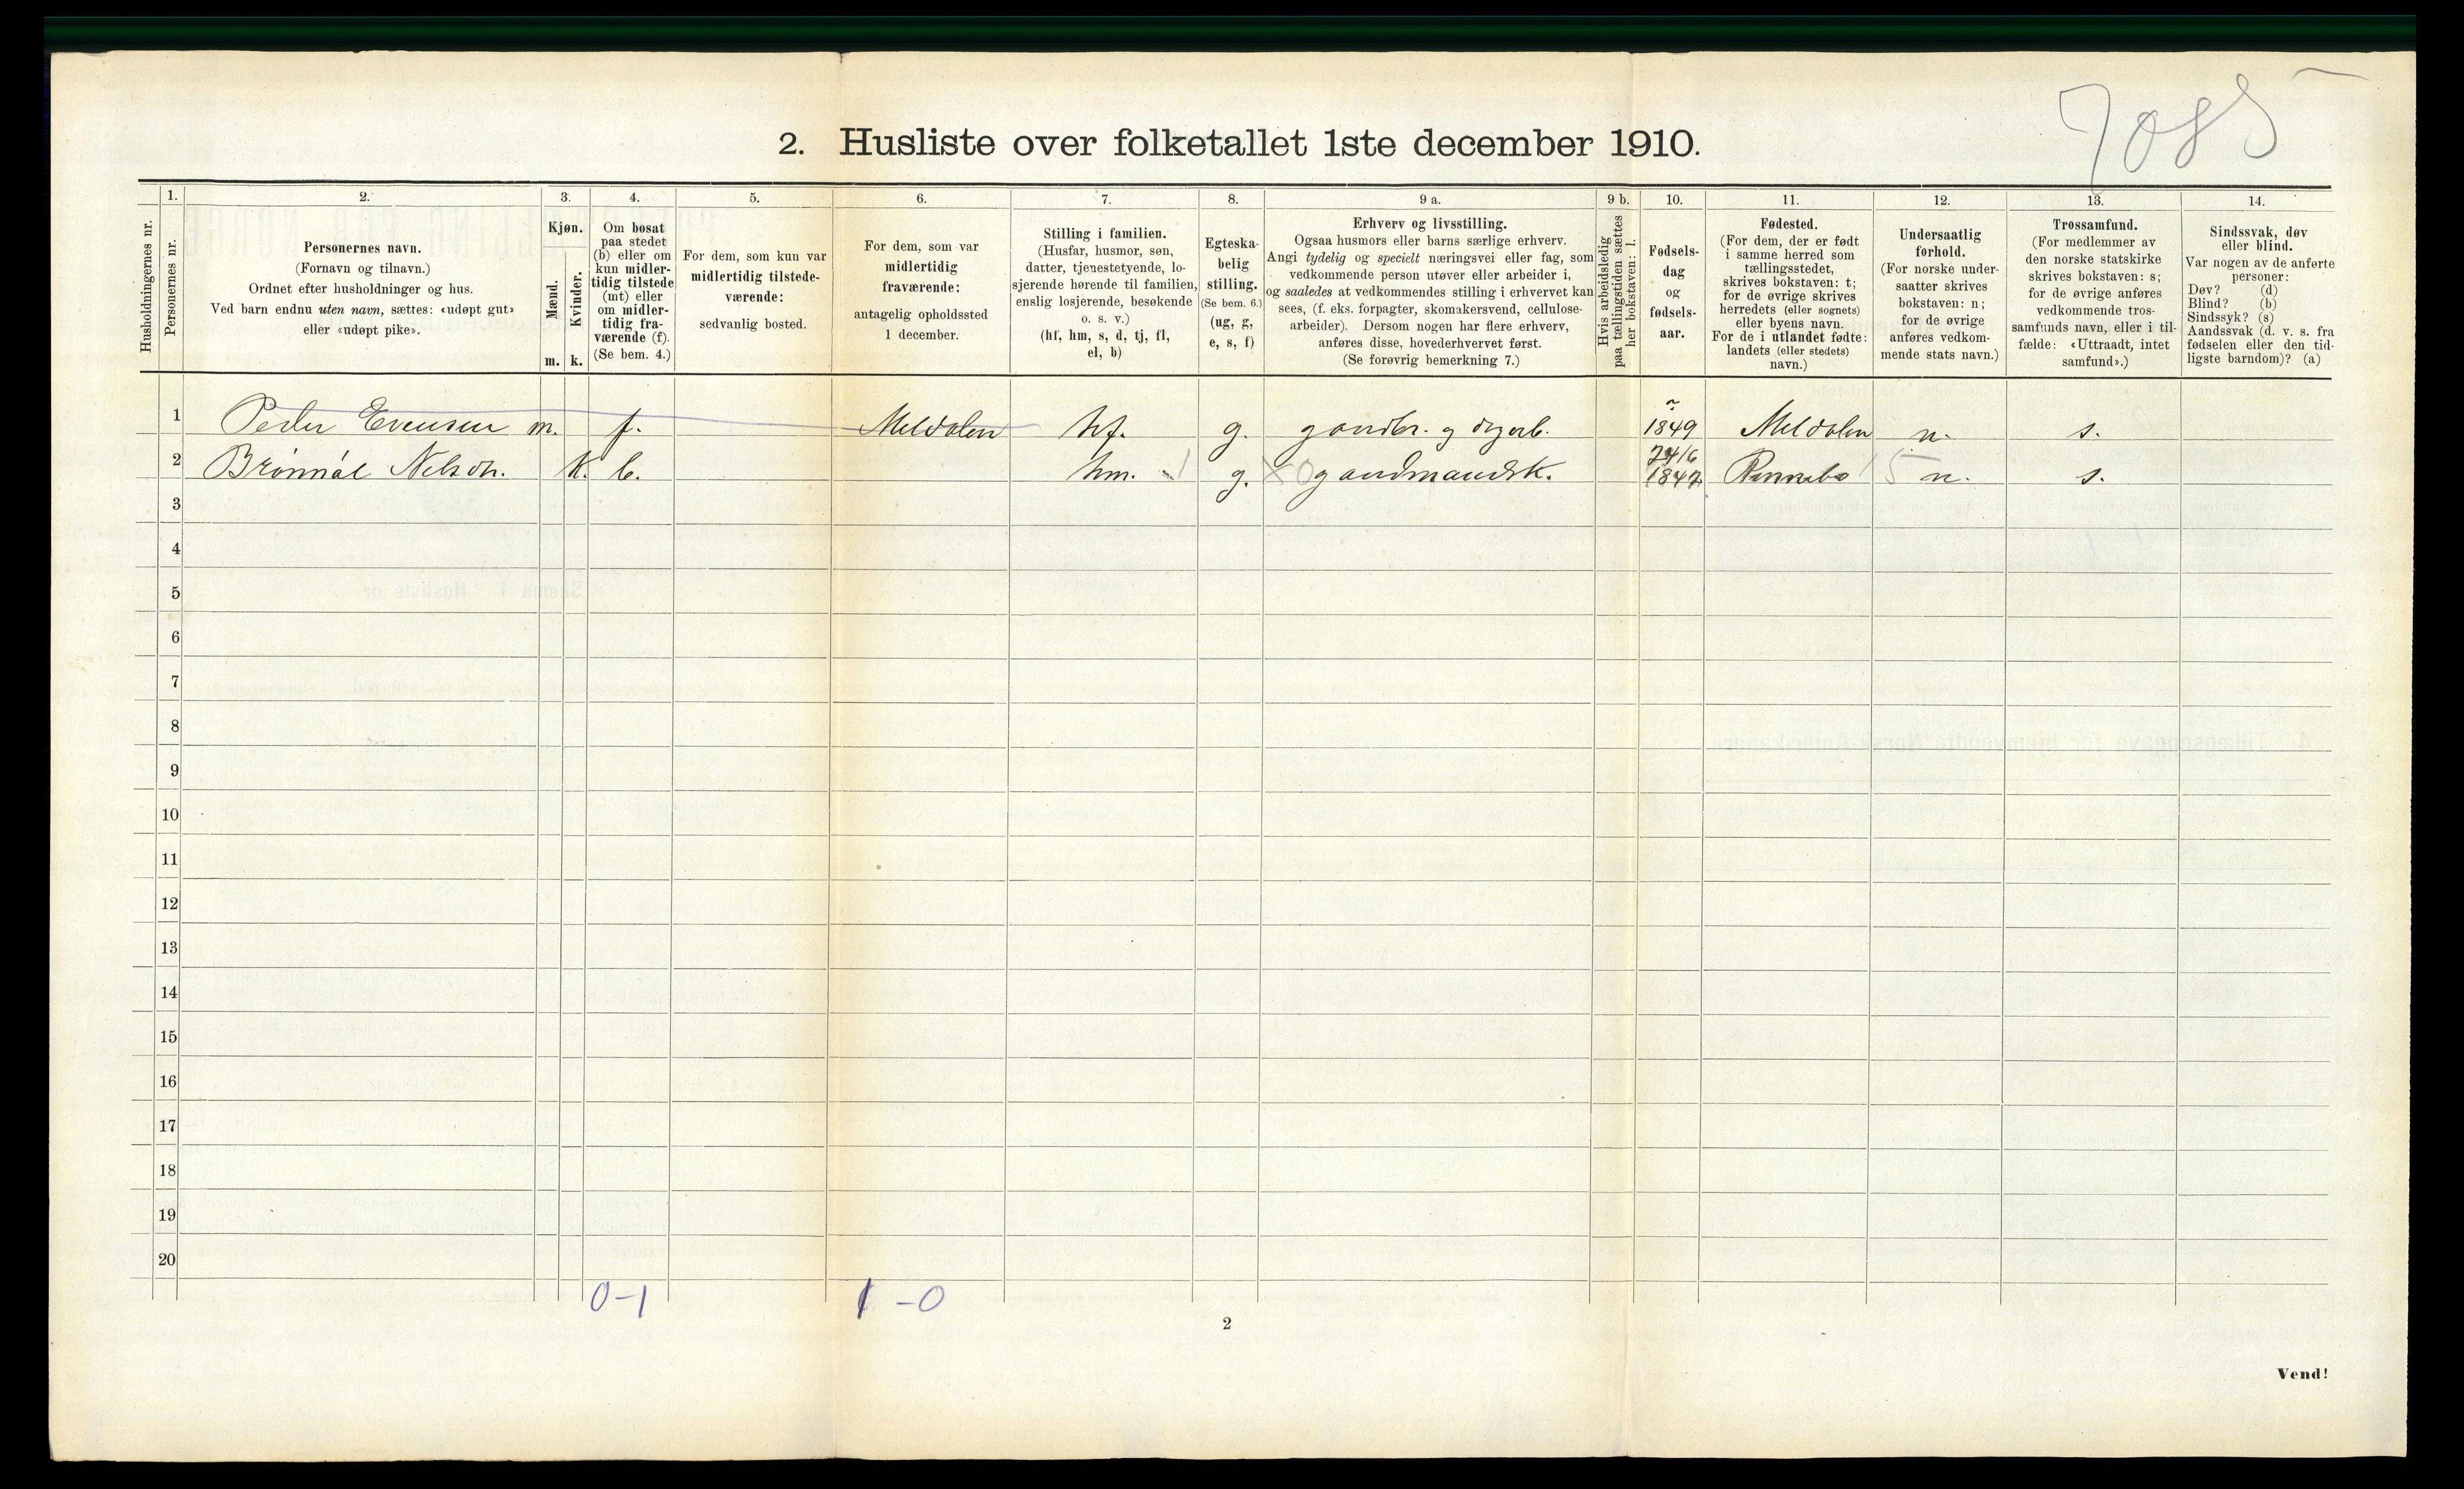 7085
2. Husliste over folketallet 1ste december 1910.
Husholdningernes nr.
1.
Personernes nr.
2.
Personernes navn.
(Fornavn og tilnavn.)
Ordnet efter husholdninger og hus.
Ved barn endnu uten navn, sættes: «udøpt gut»
eller «udøpt pike».
3.
Kjøn.
Mænd.
Kvinder.
m. k.
4.
Om bosat
paa stedet
(b) eller om
kun midler-
tidig tilstede
(mt) eller
om midler-
tidig fra-
værende (f).
(Se bem. 4.)
5.
For dem, som kun var
midlertidig tilstede-
værende:
sedvanlig bosted.
6.
For dem, som var
midlertidig
fraværende:
antagelig opholdssted
1 december.
7.
Stilling i familien.
(Husfar, husmor, søn,
datter, tjenestetyende, lo-
sjerende hørende til familien,
enslig losjerende, besøkende
o. s. v.)
(hf, hm, s, d, tj, fl,
el, b)
8.
Egteska-
belig
stilling.
(Se bem. 6.)
(ug, g,
e, s, f)
9 a.
Erhverv og livsstilling.
Ogsaa husmors eller barns særlige erhverv.
Angi tydelig og specielt næringsvei eller fag, som
vedkommende person utøver eller arbeider i,
og saaledes at vedkommendes stilling i erhvervet kan
sees, (f. eks. forpagter, skomakersvend, cellulose-
arbeider). Dersom nogen har flere erhverv,
anføres disse, hovederhvervet først.
(Se forøvrig bemerkning 7.)
9 b.
Hvis arbeidsledig
paa tællingstiden sættes
her bokstaven: l.
10.
Fødsels-
dag
og
fødsels-
aar.
11.
Fødested.
(For dem, der er født
i samme herred som
tællingsstedet,
skrives bokstaven: t;
for de øvrige skrives
herredets (eller sognets)
eller byens navn.
For de i utlandet fødte:
landets (eller stedets)
navn.)
12.
Undersaatlig
forhold.
(For norske under-
saatter skrives
bokstaven: n;
for de øvrige
anføres vedkom-
mende stats navn.)
13.
Trossamfund.
(For medlemmer av
den norske statskirke
skrives bokstaven: s;
for de øvrige anføres
vedkommende tros-
samfunds navn, eller i til-
fælde: «Uttraadt, intet
samfund».)
14.
Sindssvak, døv
eller blind.
Var nogen av de anførte
personer:
Døv? (d)
Blind? (b)
Sindssyk? (s)
Aandssvak (d. v. s. fra
fødselen eller den tid-
ligste barndom)? (a)
1 Peder Evensen m. f. Meldalen hf. g. gaardbr. og 1849 Meldalen n. s.
2 k. b. hm. g. gaardmandsk. 1847 Rennebo 5 n. s.
3
4
5
6
7
8
9
10
11
12
13
14
15
16
17
18
19
20
0-1 1-0
2
Vend!